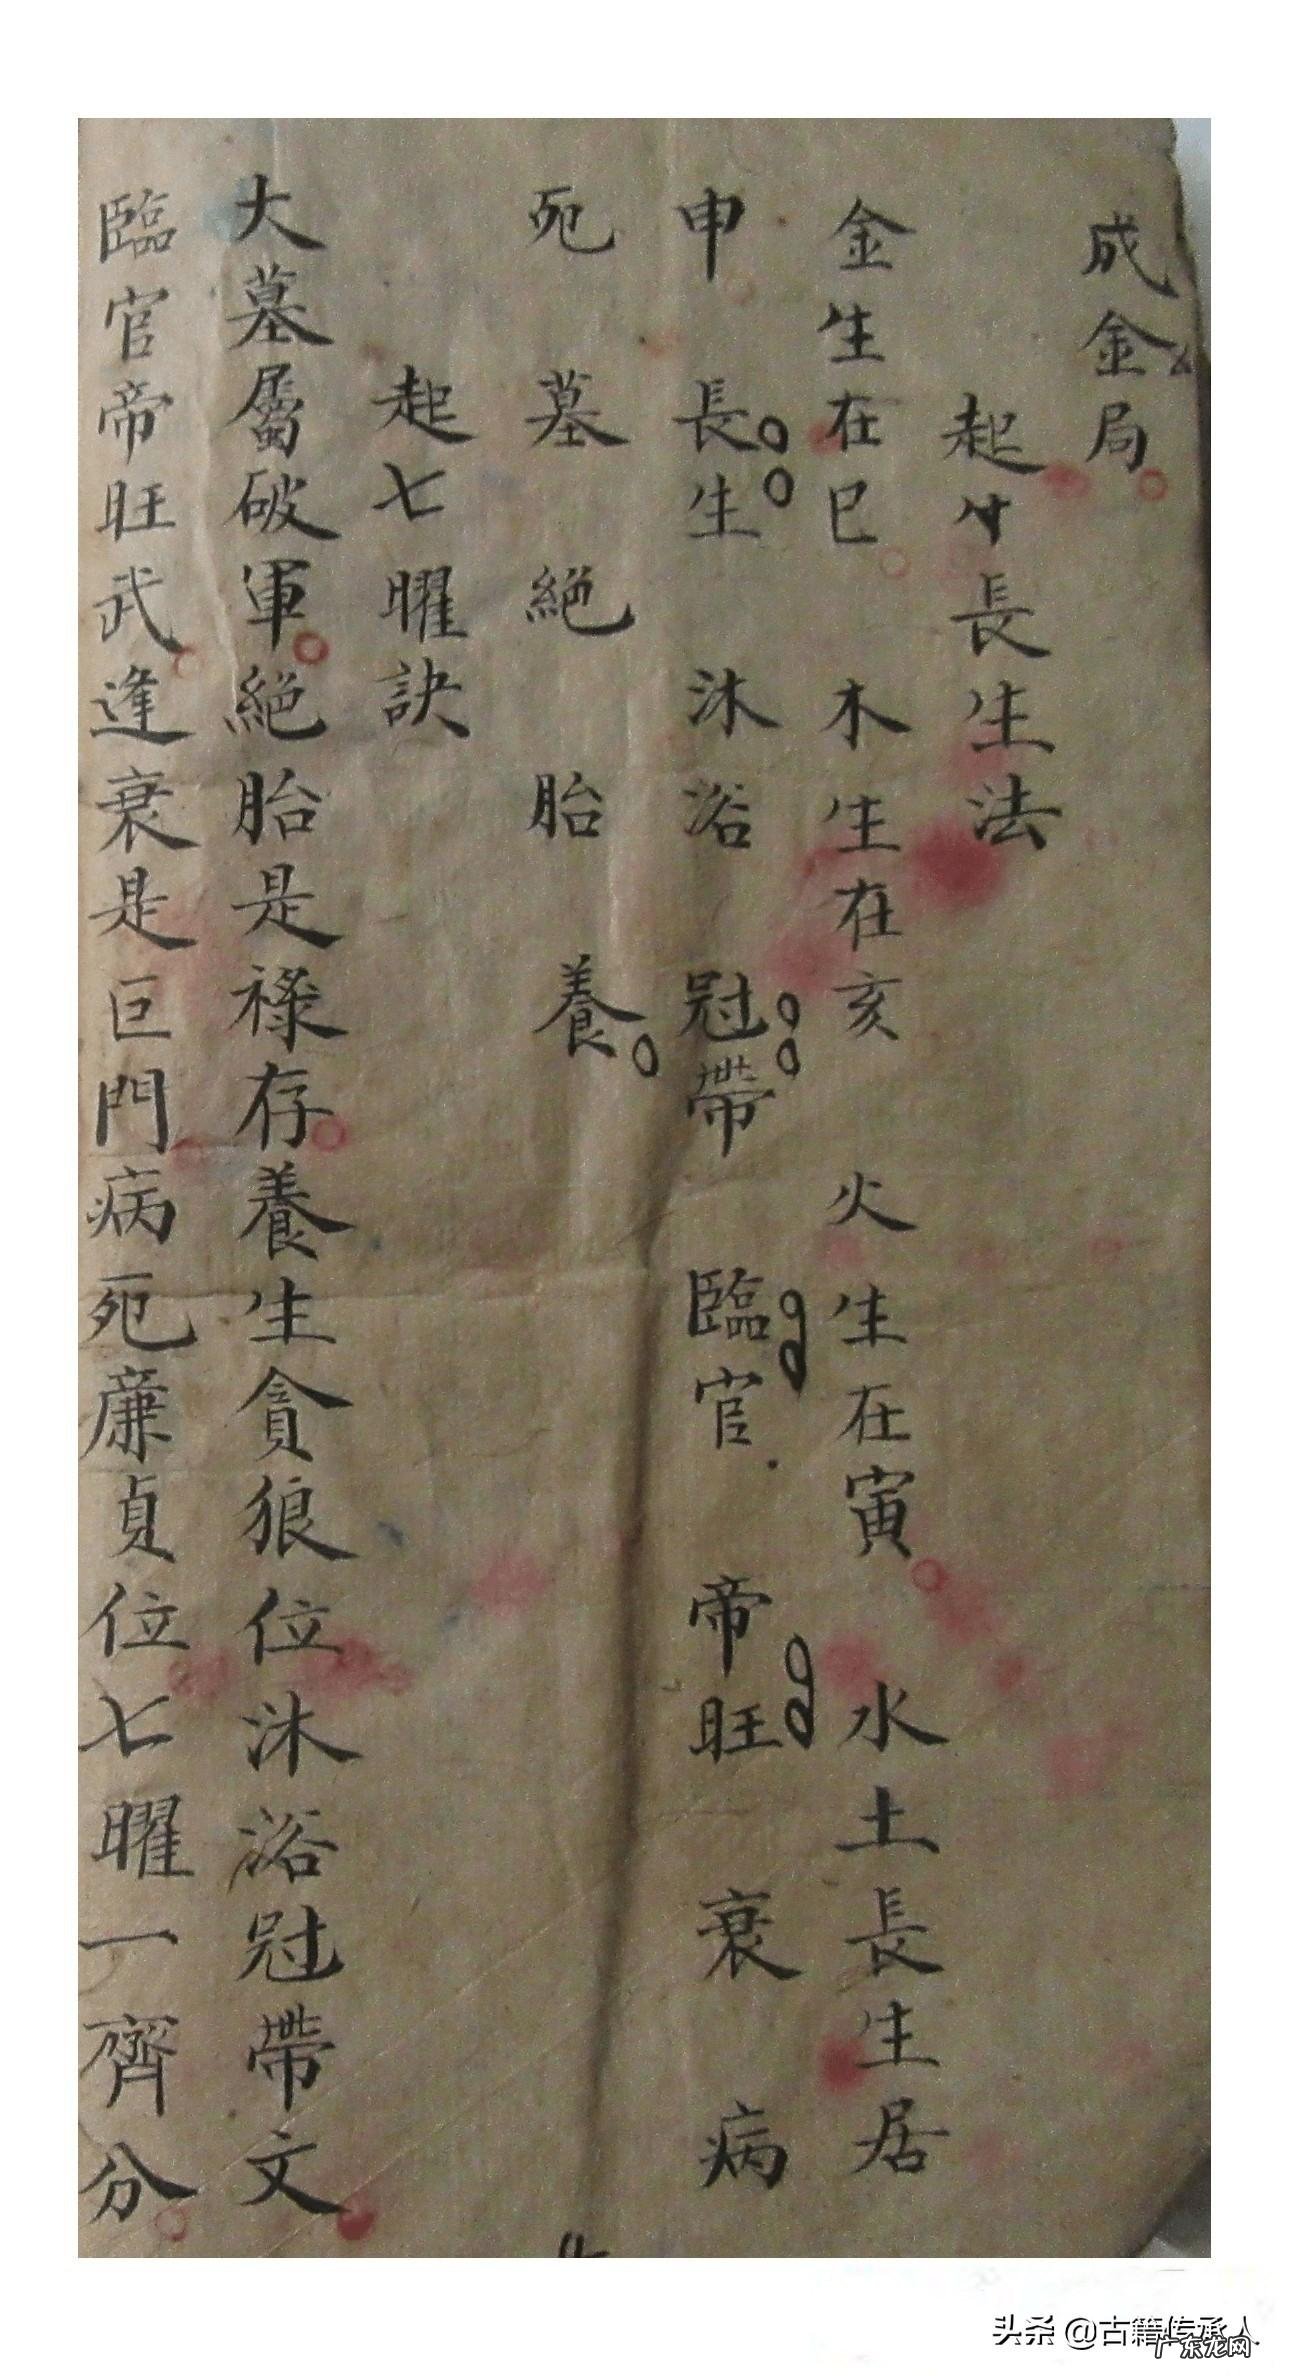 成金局
起 長生法
金生在巳 木生在亥 火生在寅 水土長生居
申 長生 沐浴 冠帶 臨官 帝旺 衰 病
死 墓 絕 胎 養
起七曜訣
大墓屬破軍絕胎是祿存養生貪狼位沐浴冠帶文
臨官帝旺武逢衰是巨門病死廉貞位七曜一齊分
头条 @古籍传承人
广东龙网